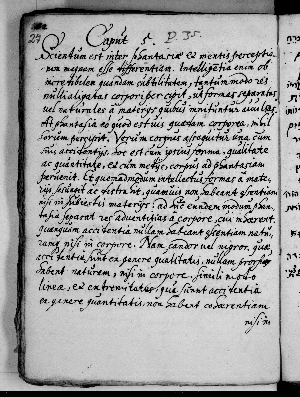 24
Caput 5. P. 35.
Scientum est inter phantasiæ et mentis perceptio
nem magnam esse differentiam. Intelligentia enim ob
incredibilem quandam subtilitatem, tantum moto res
nulli alligatas corpori percipit, ut formas separatas
vel naturales a materijs quibus innituntur
At phantasia eo quod est vis quædam corporea, nul
corium percipit. Verum corpus assequitur una cum
suis accidentijs, hoc est cum ipsius forma, qualitate
ac quantitate, ea cum metijs, corpus ad phantasiam
pervenit. Et quemadmodum intellectus formas a mate
rijs, seiungit ac distrahit, quamvis non habeant existentiam
nisi in subiectis materijs: ad hunc eundem modum phan
tasia separat res adventitias a corpore, cui inhærent,
quamquam accidentia nullam habeant existentiam natu
ram nisi in corpore. Nam candor vel nigror, quæ
accidentia sunt ex genere qualitatis, nullam prorsus
habent naturam, nisi in corpore. simili modo
linea, et extremitates, quæ sunt accidentia
ex genere quantitatis, non habent cohærentiam
nisi in